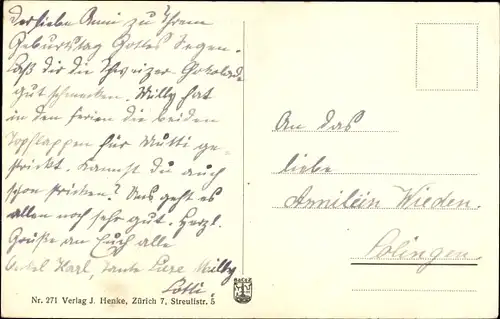 Der lieben Anni zu Ihrem
Geburtstag Gottes Segen.
Laß dir die Schweizer-Schokolade
gut schmecken. Milly hat
in den Ferien die beiden
Topflappen für Mutti ge-
strickt. Kannst du auch
schon stricken? Uns geht es
allen noch sehr gut. Herzl.
Grüße an Euch alle
Onkel Karl, Tante Luise Milly
Lotti.
An das
liebe
Annilein Wieden.
Solingen.
Nr. 271 Verlag J. Henke, Zürich 7, Streulistr. 5